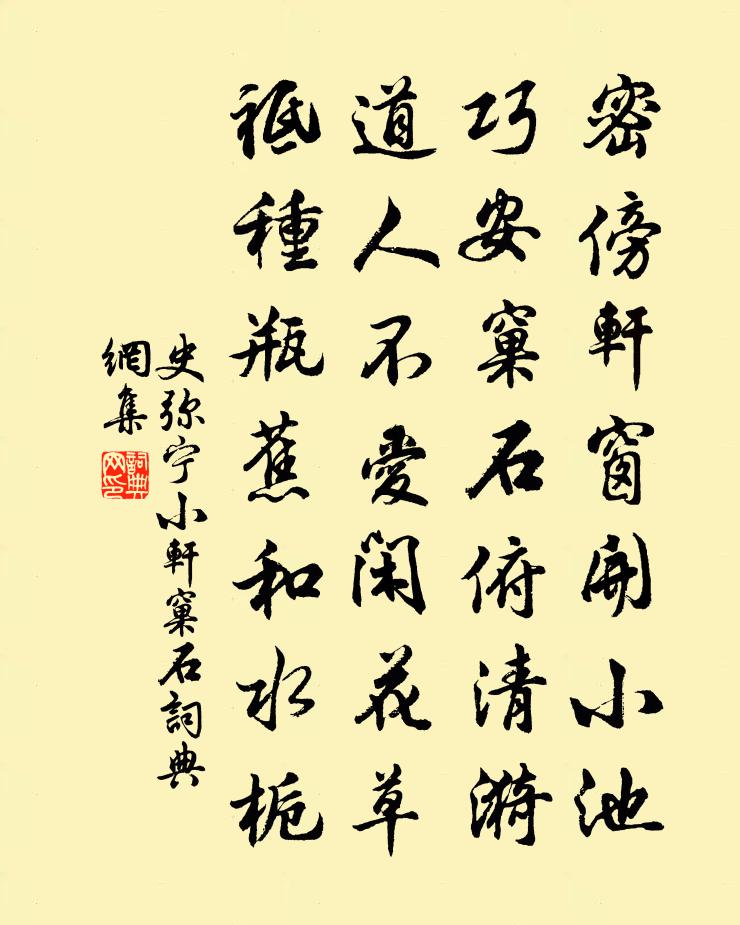 密傍軒窗開小池
巧安窠石俯清漪
道人不愛閑花草
祗種瓶蕉和水梔
史弥宁小軒窠石詞典
網集
詞典网印